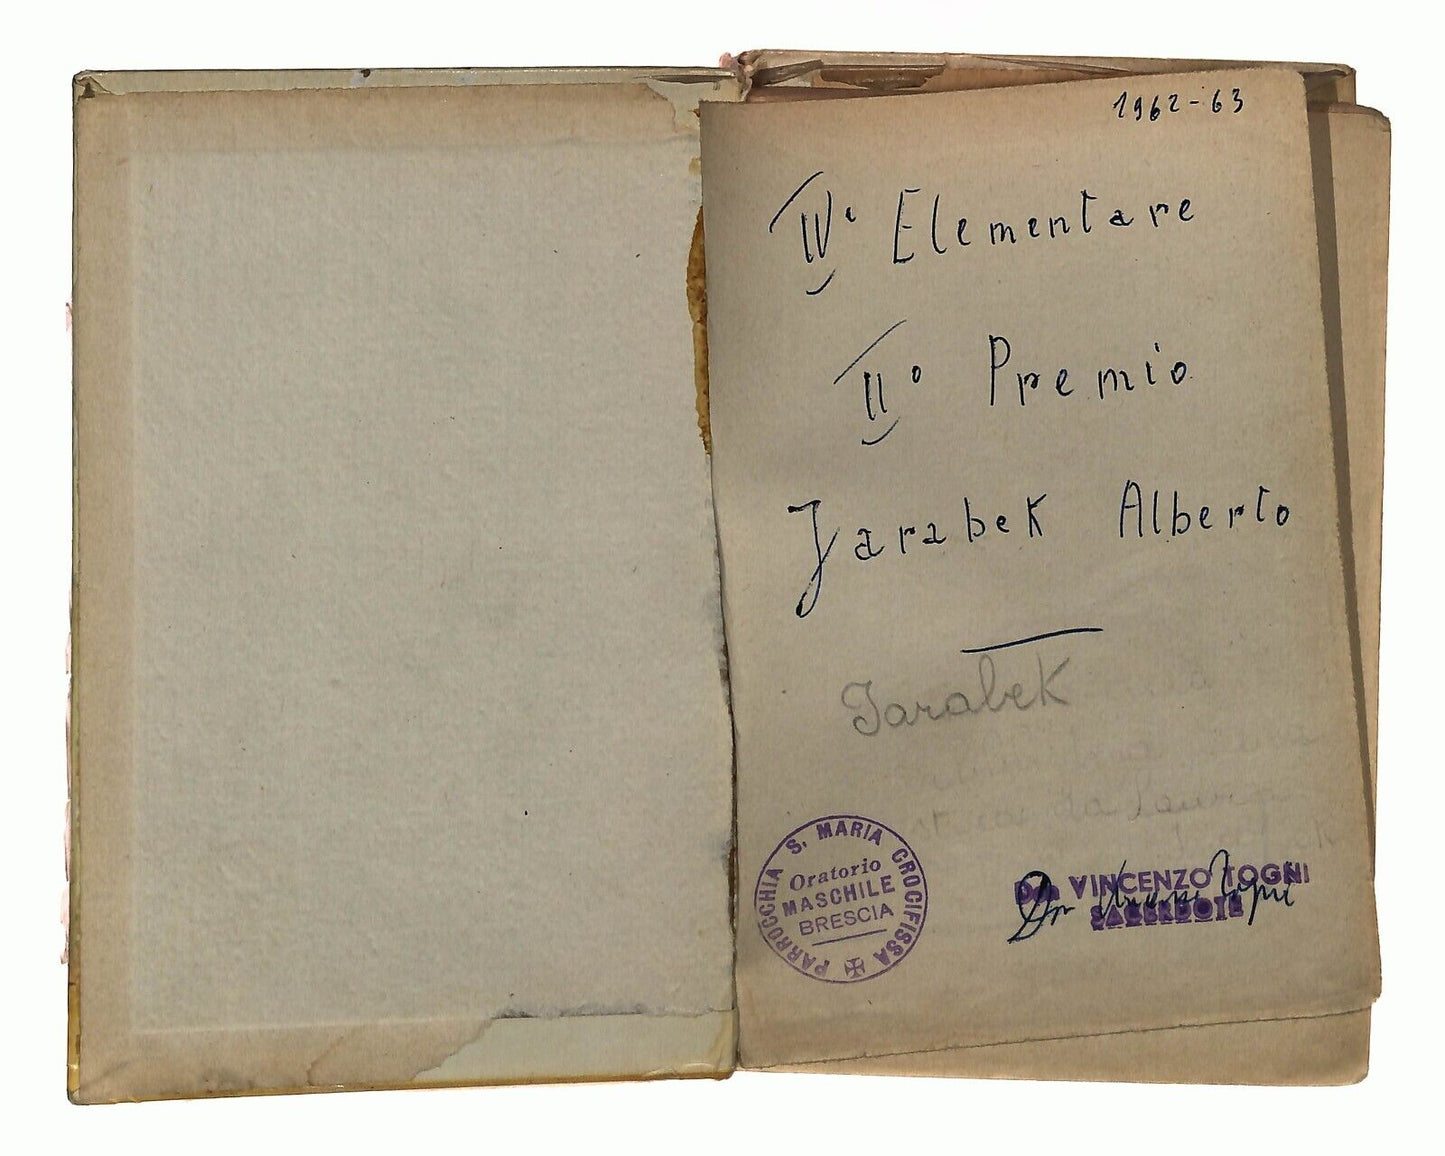 1962-63
IVª Elementare
IIº Premio
Jarabek Alberto
Jarabek
da
PARROCCHIA S. MARIA CROCIFISSA
Oratorio
MASCHILE
BRESCIA
Don VINCENZO TOGNI
SACERDOTE
Don Vincenzo Togni